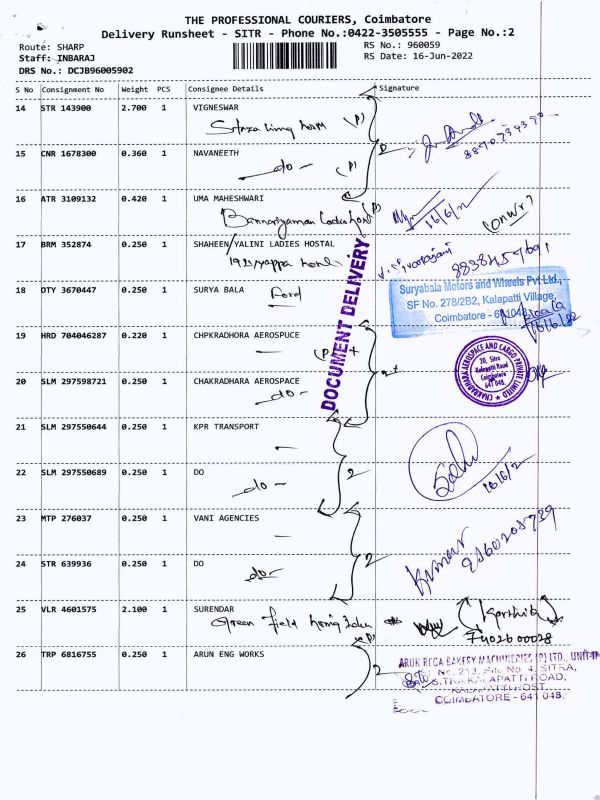 THE PROFESSIONAL COURIERS, Coimbatore
Delivery Runsheet - SITR - Phone No.:0422-3505555 - Page No.:2
Route: SHARP
RS No.: 960059
Staff: INBARAJ
RS Date: 16-Jun-2022
DRS No.: DCJB96005902
S No Consignment No Weight PCS Consignee Details Signature
14 STR 143900 2.700 1 VIGNESWAR
(P)
15 CNR 1678300 0.360 1 NAVANEETH
do - (P)
16 ATR 3109132 0.420 1 UMA MAHESHWARI
(P) 16/6/2
17 BRM 352874 0.250 1 SHAHEEN/YALINI LADIES HOSTAL
18 DTY 3670447 0.250 1 SURYA BALA
Ford
DOCUMENT DELIVERY
Suryabala Motors and Wheels Pvt Ltd.,
SF No. 278/2B2, Kalapatti Village,
Coimbatore - 641048.
19 HRD 704046287 0.220 1 CHPKRADHORA AEROSPUCE
CHAKRADHARA AEROSPACE AND CARGO PRIVATE LIMITED
20, Sitra
Kalapatti Road
Coimbatore
641 048.
20 SLM 297598721 0.250 1 CHAKRADHARA AEROSPACE
do -
21 SLM 297550644 0.250 1 KPR TRANSPORT
22 SLM 297550689 0.250 1 DO
do - 2 16/6/2
23 MTP 276037 0.250 1 VANI AGENCIES
24 STR 639936 0.250 1 DO
do - 2 Kumar
25 VLR 4601575 2.100 1 SURENDAR
Green Field (Karthik)
7402600028
26 TRP 6816755 0.250 1 ARUN ENG WORKS
2
ARUK REGA BAKERY MACHINERIES (P) LTD., UNIT-II
No. 213, Site No. 4, SITRA,
SITRA KALAPATTI ROAD,
KALAPATTI POST,
COIMBATORE - 641 048.